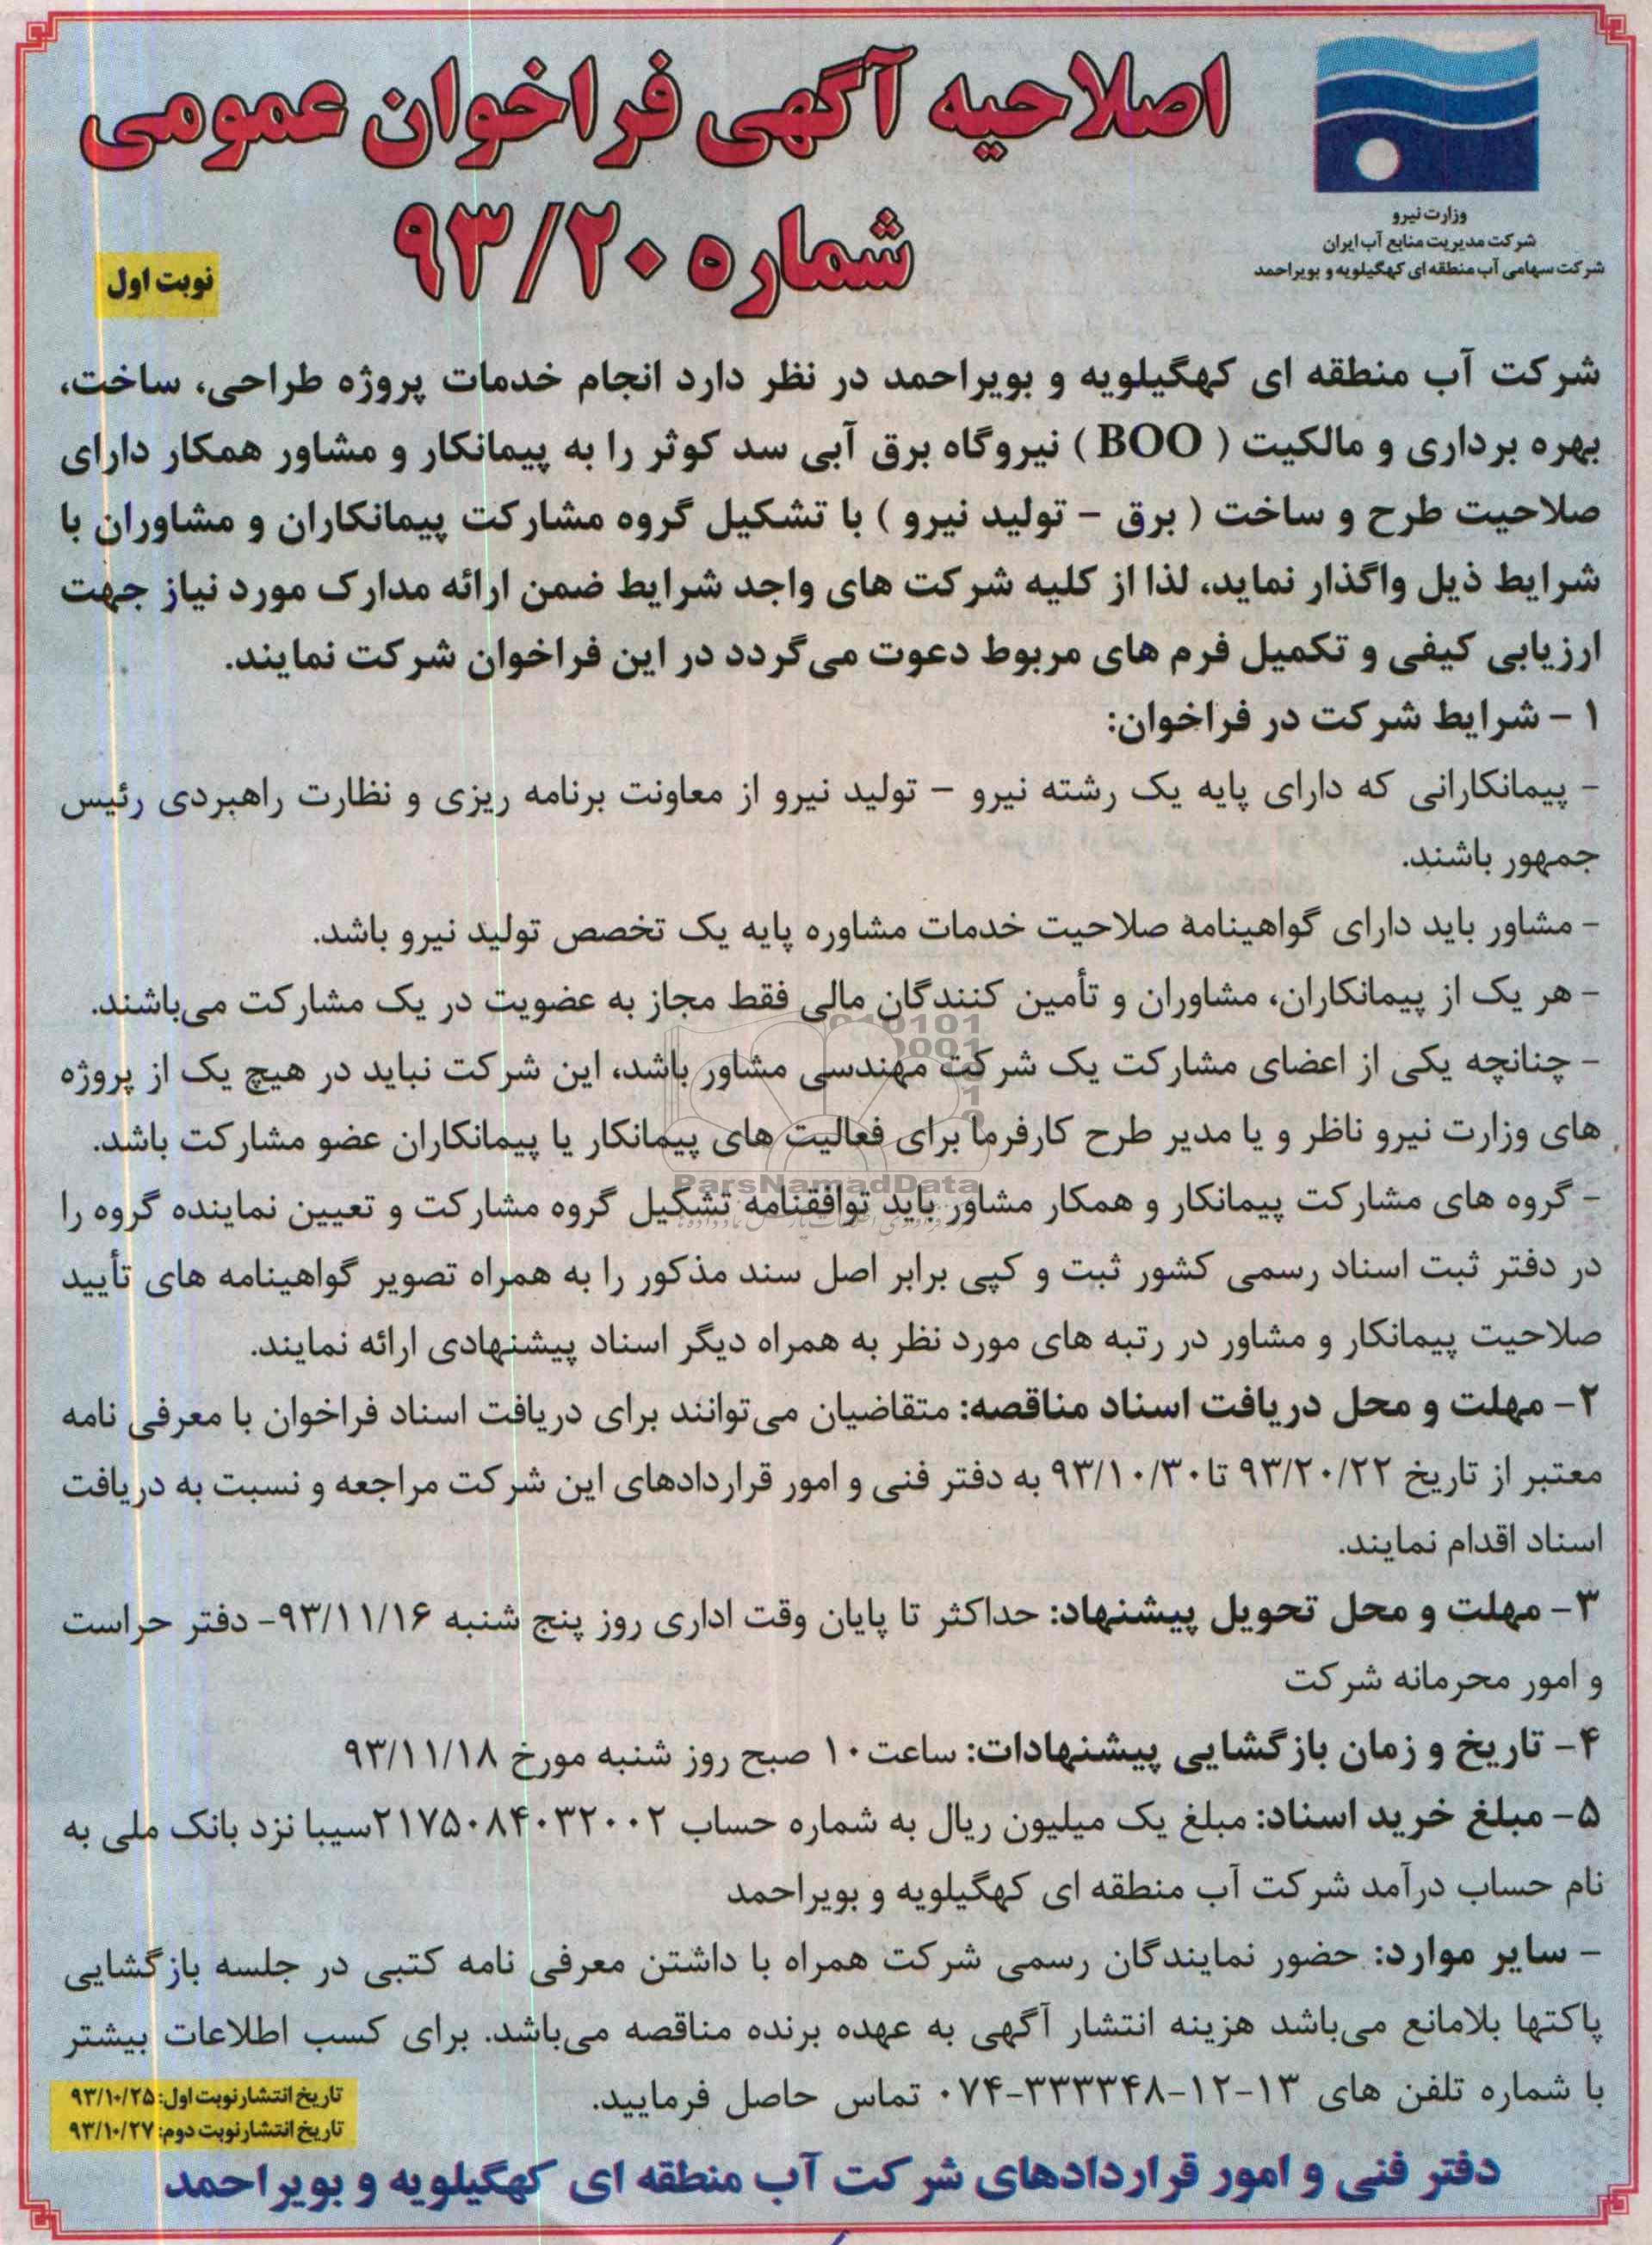 اصلاحیه آگهی فراخوان عمومی
شماره ۹۳/۲۰
وزارت نیرو
شرکت مدیریت منابع آب ایران
شرکت سهامی آب منطقه ای کهگیلویه و بویراحمد
نوبت اول
شرکت آب منطقه ای کهگیلویه و بویراحمد در نظر دارد انجام خدمات پروژه طراحی، ساخت،
بهره برداری و مالکیت ( BOO ) نیروگاه برق آبی سد کوثر را به پیمانکار و مشاور همکار دارای
صلاحیت طرح و ساخت ( برق - تولید نیرو ) با تشکیل گروه مشارکت پیمانکاران و مشاوران با
شرایط ذیل واگذار نماید، لذا از کلیه شرکت های واجد شرایط ضمن ارائه مدارک مورد نیاز جهت
ارزیابی کیفی و تکمیل فرم های مربوط دعوت می‌گردد در این فراخوان شرکت نمایند.
۱ - شرایط شرکت در فراخوان:
- پیمانکارانی که دارای پایه یک رشته نیرو - تولید نیرو از معاونت برنامه ریزی و نظارت راهبردی رئیس
جمهور باشند.
- مشاور باید دارای گواهینامه صلاحیت خدمات مشاوره پایه یک تخصص تولید نیرو باشد.
- هر یک از پیمانکاران، مشاوران و تأمین کنندگان مالی فقط مجاز به عضویت در یک مشارکت می‌باشند.
- چنانچه یکی از اعضای مشارکت یک شرکت مهندسی مشاور باشد، این شرکت نباید در هیچ یک از پروژه
های وزارت نیرو ناظر و یا مدیر طرح کارفرما برای فعالیت های پیمانکار یا پیمانکاران عضو مشارکت باشد.
ParsNamadData
- گروه های مشارکت پیمانکار و همکار مشاور باید توافقنامه تشکیل گروه مشارکت و تعیین نماینده گروه را
در دفتر ثبت اسناد رسمی کشور ثبت و کپی برابر اصل سند مذکور را به همراه تصویر گواهینامه های تأیید
صلاحیت پیمانکار و مشاور در رتبه های مورد نظر به همراه دیگر اسناد پیشنهادی ارائه نمایند.
۲- مهلت و محل دریافت اسناد مناقصه: متقاضیان می‌توانند برای دریافت اسناد فراخوان با معرفی نامه
معتبر از تاریخ ۹۳/۲۰/۲۲ تا ۹۳/۱۰/۳۰ به دفتر فنی و امور قراردادهای این شرکت مراجعه و نسبت به دریافت
اسناد اقدام نمایند.
۳- مهلت و محل تحویل پیشنهاد: حداکثر تا پایان وقت اداری روز پنج شنبه ۹۳/۱۱/۱۶- دفتر حراست
و امور محرمانه شرکت
۴- تاریخ و زمان بازگشایی پیشنهادات: ساعت ۱۰ صبح روز شنبه مورخ ۹۳/۱۱/۱۸
۵- مبلغ خرید اسناد: مبلغ یک میلیون ریال به شماره حساب ۲۱۷۵۰۸۴۰۳۲۰۰۲سیبا نزد بانک ملی به
نام حساب درآمد شرکت آب منطقه ای کهگیلویه و بویراحمد
- سایر موارد: حضور نمایندگان رسمی شرکت همراه با داشتن معرفی نامه کتبی در جلسه بازگشایی
پاکتها بلامانع می‌باشد هزینه انتشار آگهی به عهده برنده مناقصه می‌باشد. برای کسب اطلاعات بیشتر
با شماره تلفن های ۱۳-۱۲-۳۳۳۳۴۸-۰۷۴ تماس حاصل فرمایید.
تاریخ انتشار نوبت اول: ۹۳/۱۰/۲۵
تاریخ انتشار نوبت دوم: ۹۳/۱۰/۲۷
دفتر فنی و امور قراردادهای شرکت آب منطقه ای کهگیلویه و بویراحمد